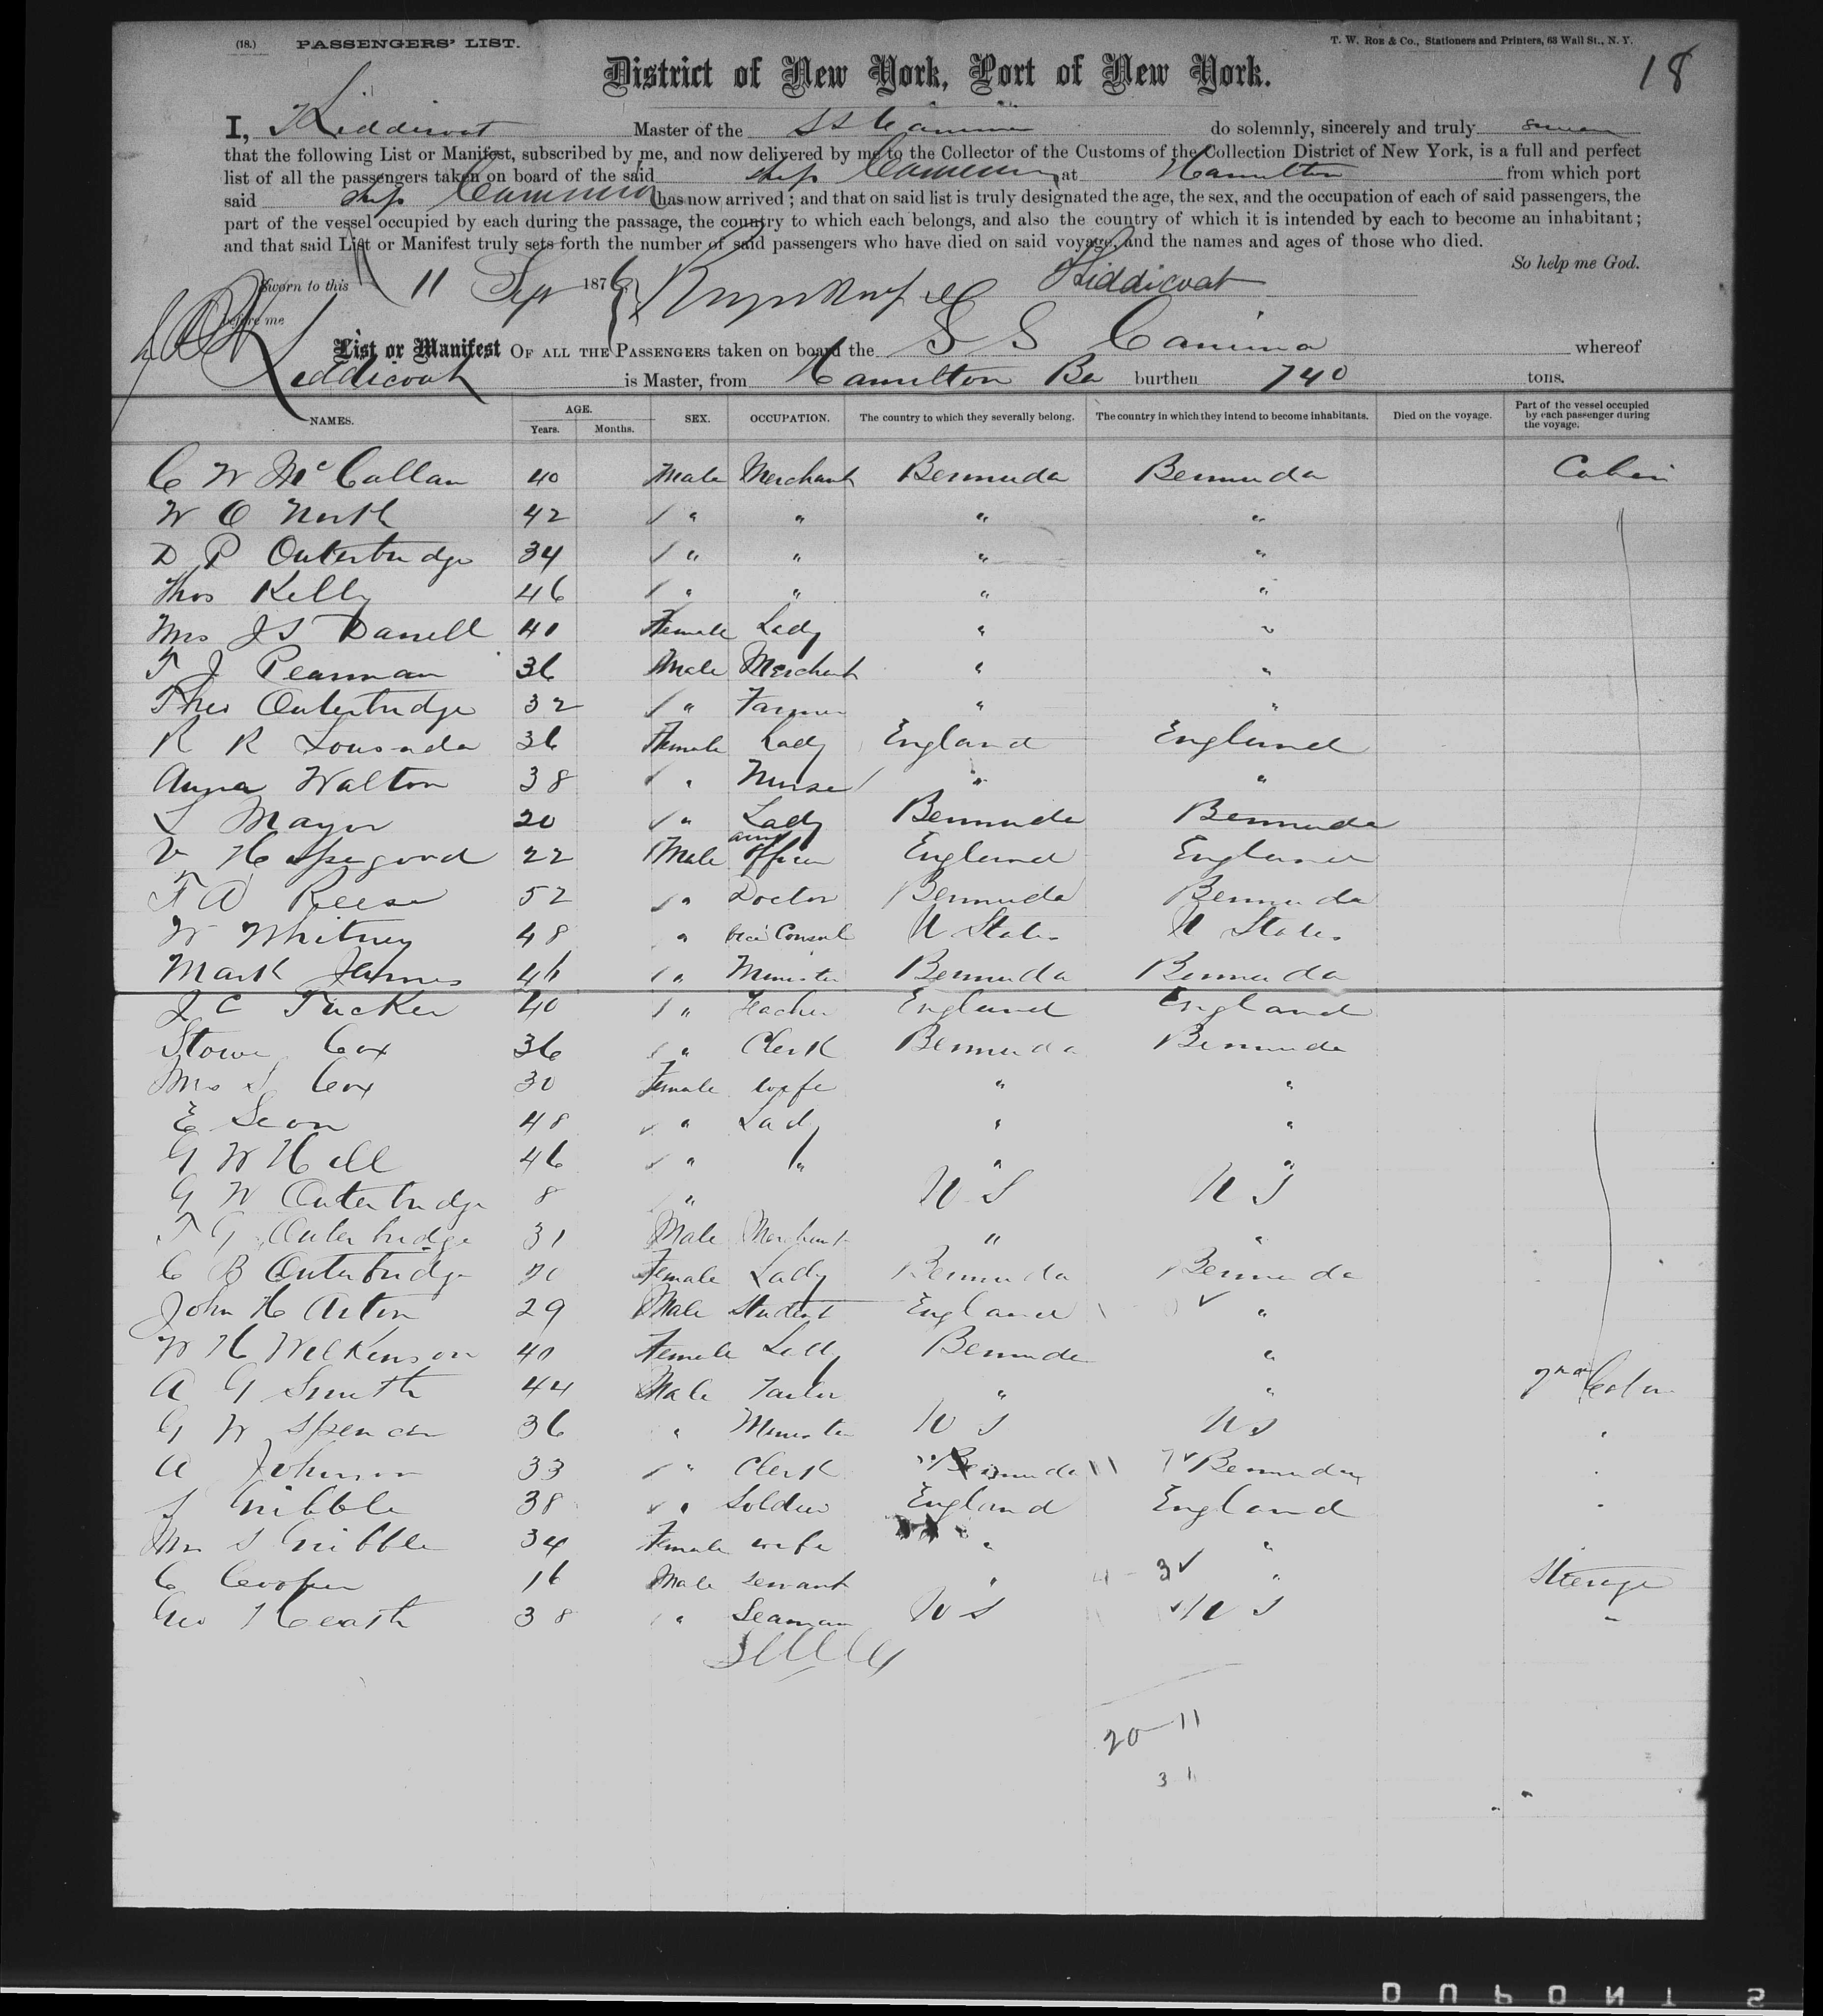 (18.) PASSENGERS' LIST. T. W. ROE & CO., Stationers and Printers, 63 Wall St., N. Y.
18
District of New York, Port of New York.
I, Liddicoat Master of the SS Canima do solemnly, sincerely and truly swear
that the following List or Manifest, subscribed by me, and now delivered by me to the Collector of the Customs of the Collection District of New York, is a full and perfect
list of all the passengers taken on board of the said ship Canima at Hamilton from which port
said ship Canima has now arrived; and that on said list is truly designated the age, the sex, and the occupation of each of said passengers, the
part of the vessel occupied by each during the passage, the country to which each belongs, and also the country of which it is intended by each to become an inhabitant;
and that said List or Manifest truly sets forth the number of said passengers who have died on said voyage, and the names and ages of those who died.
So help me God.
Sworn to this 11 Sep 1876 Liddicoat
before me
List or Manifest OF ALL THE PASSENGERS taken on board the S S Canima whereof
Liddicoat is Master, from Hamilton Ba burthen 740 tons.
NAMES. AGE. Years. Months. SEX. OCCUPATION. The country to which they severally belong. The country in which they intend to become inhabitants. Died on the voyage. Part of the vessel occupied by each passenger during the voyage.
C W McCallan 40 Male Merchant Bermuda Bermuda Cabin
W O North 42 " " " "
D P Outerbridge 34 " " " "
Thos Kelly 46 " " " "
Mrs J S Darrell 40 Female Lady " "
T J Pearman 36 Male Merchant " "
Theo Outerbridge 32 " Farmer " "
R R Lousada 36 Female Lady England England
Anna Walton 38 " Nurse " "
L Mayor 20 " Lady Bermuda Bermuda
V Hapegood 22 Male army officer England England
T A Reese 52 " Doctor Bermuda Bermuda
W Whitney 48 " vice Consul U States U States
Mark James 46 " Minister Bermuda Bermuda
J C Tucker 40 " Teacher England England
Stowe Cox 36 " Clerk Bermuda Bermuda
Mrs S Cox 30 Female wife " "
E Seon 48 " Lady " "
G W Hall 46 " " " "
G W Outerbridge 8 " U S U S
T G Outerbridge 31 Male Merchant " "
C B Outerbridge 70 Female Lady Bermuda Bermuda
John H Arton 29 Male Student England "
W H Wilkinson 40 Female Lady Bermuda "
A G Smith 44 Male Tailor " " 2nd Cabin
G W Spencer 36 " Minister U S U S "
A Johnson 33 " Clerk Bermuda Bermuda "
S Gribble 38 " Soldier England England "
Mrs S Gribble 34 Female wife " "
C Cooper 16 Male servant " 4 3 " Steerage
Geo Heath 38 " Seaman U S U S "
20 - 11
31
DUPONT S